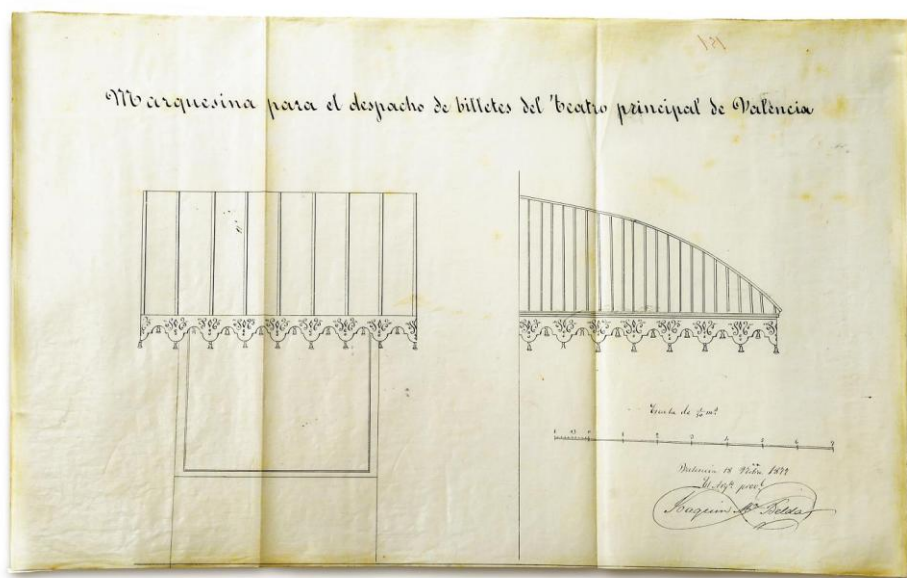 151
Marquesina para el despacho de billetes del Teatro principal de Valencia
Escala de
Valencia 18 1879
El
Joaquin Mª Belda